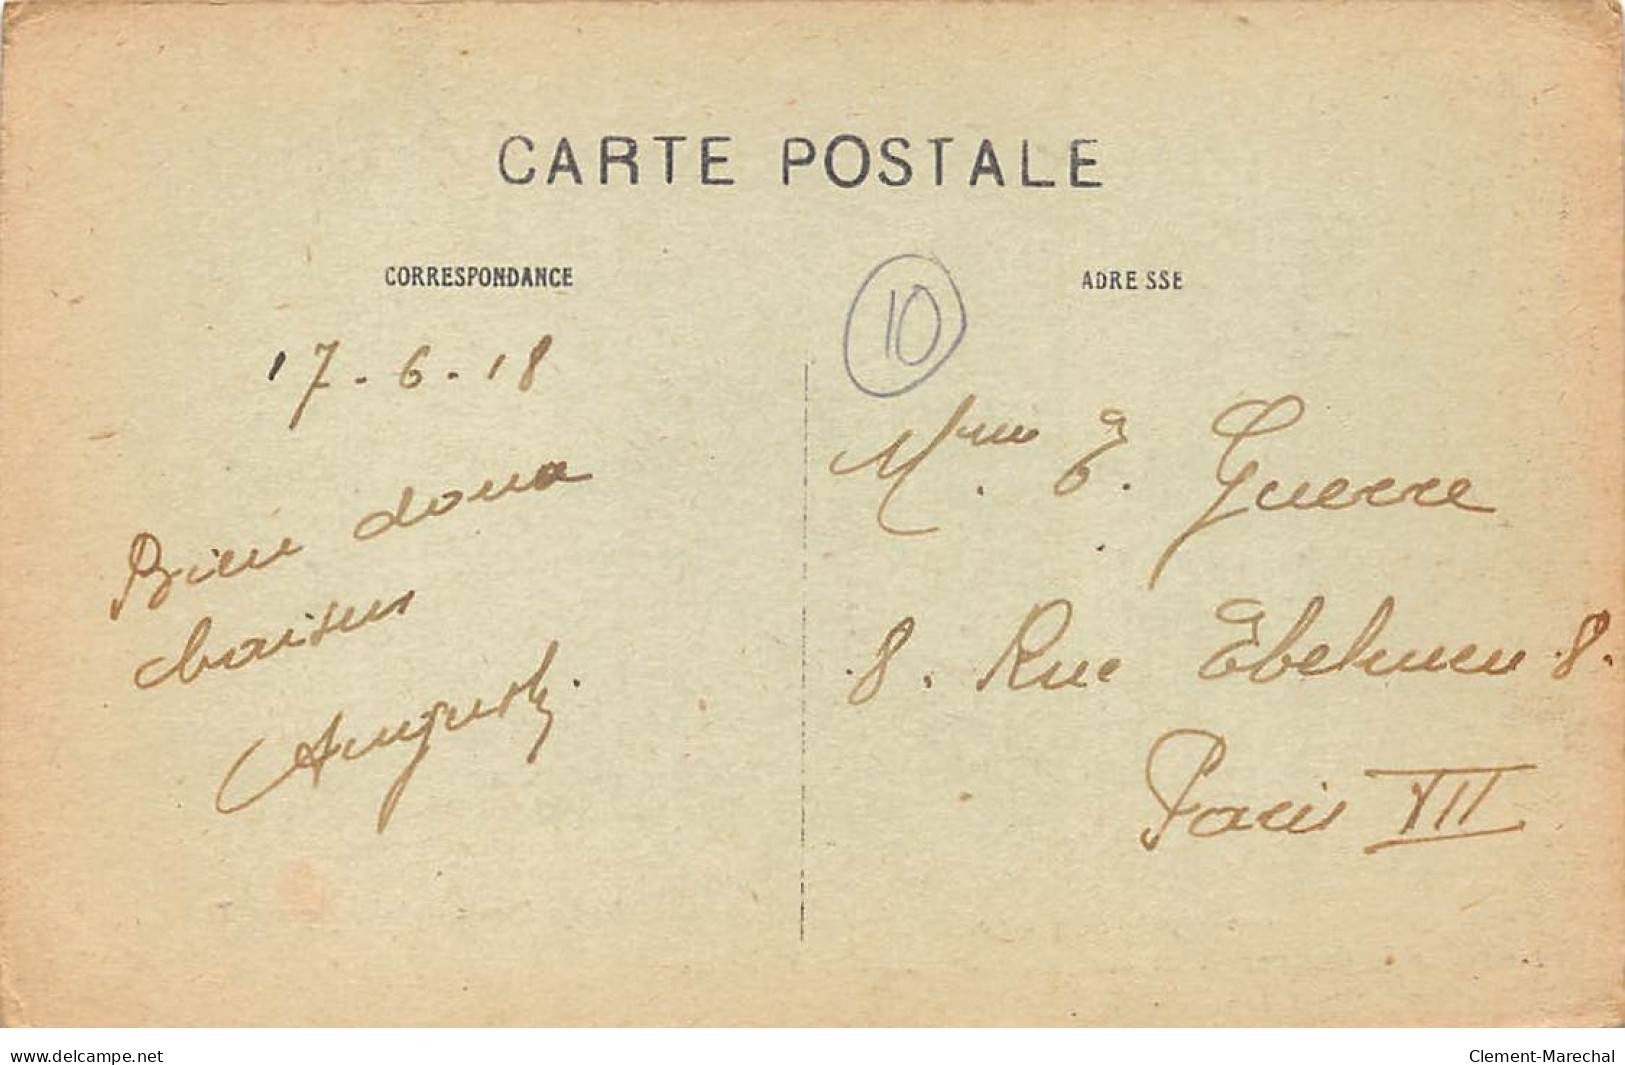 CARTE POSTALE
CORRESPONDANCE
ADRE SSE
10
17-6-18
Bien doux
baisers
Auguste.
Mme. E. Guerre
8. Rue Ebelmen 8.
Paris XII
www.delcampe.net
Clement-Marechal